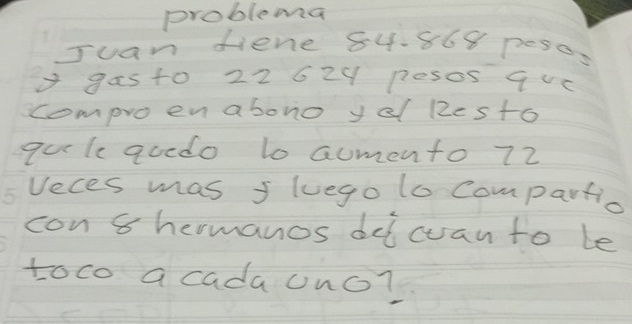 problema
Juan tiene 84.868 pesos
y gasto 22624 pesos que
compro en abono y el Resto
que le quedo lo aumento 72
veces mas y luego lo compartio
con 8 hermanos de cuanto le
toco a cada uno?